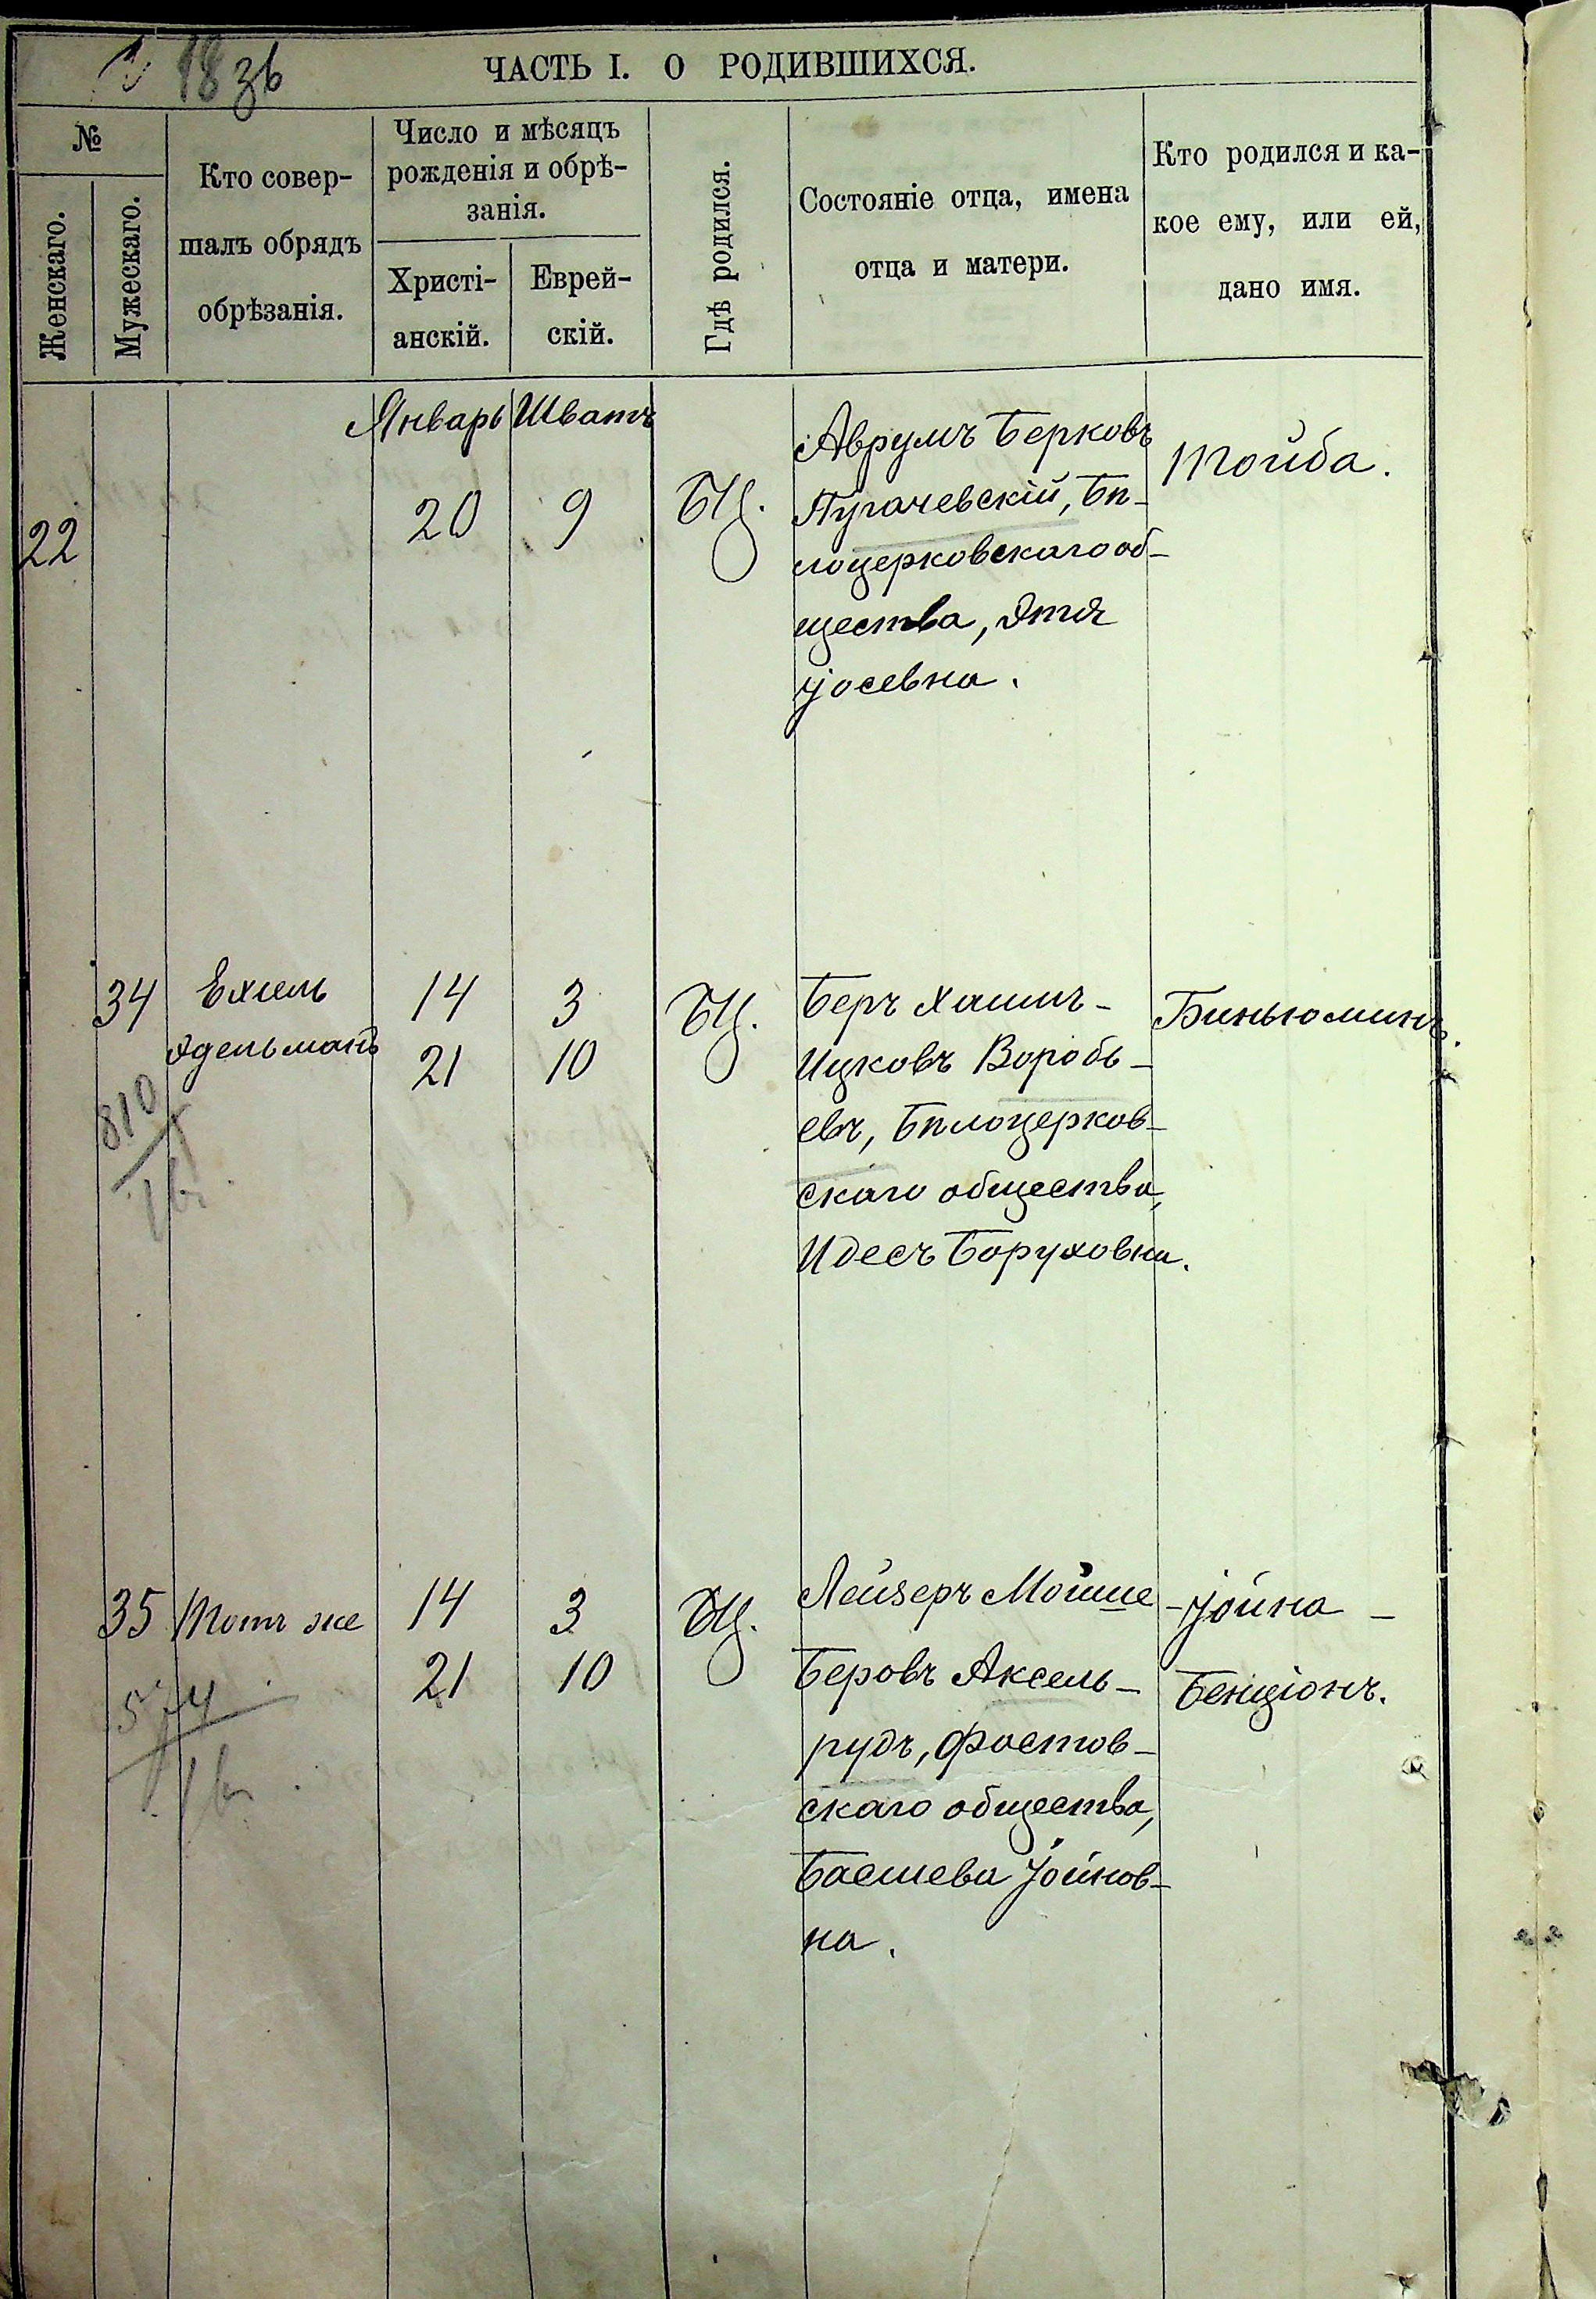 18 зв
ЧАСТЬ I. О РОДИВШИХСЯ.
№
Женскаго.
Мужескаго.
Кто совер-
шалъ обрядъ
обрѣзанія.
Число и мѣсяцъ
рожденія и обрѣ-
занія.
Христі-
анскій.
Еврей-
скій.
Гдѣ родился.
Состояніе отца, имена
отца и матери.
Кто родился и ка-
кое ему, или ей,
дано имя.
Январь Шватъ
22 20 9 БЦ.
Аврумъ Берковъ
Пугачевскій, Бѣ-
лоцерковскаго об-
щества, Этя
Іосевна.
Тойба.
34 Ехиль
Эдельманъ
14 3
21 10
БЦ.
Беръ Хаимъ-
Ицковъ Воробь-
евъ, Бѣлоцерков-
скаго общества,
Идесъ Боруховна.
Биньюминъ.
810
35 Тотъ же
14 3
21 10
БЦ.
Лейзеръ Мойше-
Беровъ Аксель-
рудъ, Фастов-
скаго общества,
Басшева Іойнов-
на.
Іойна-
Бенціонъ.
574